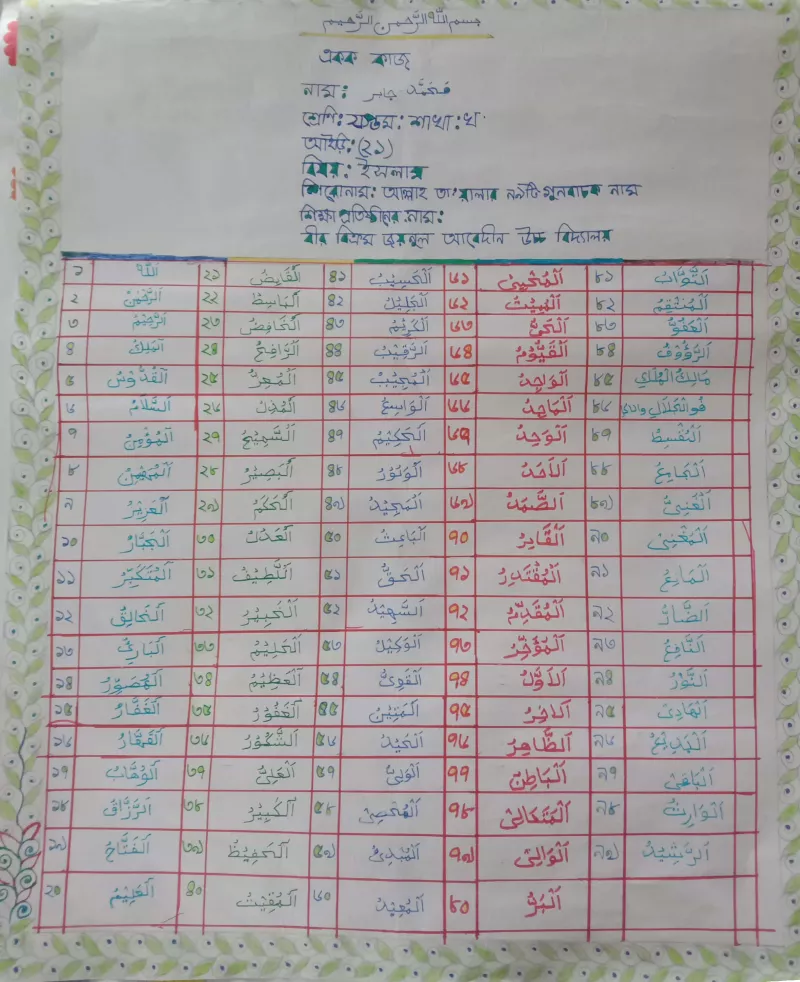 بسم الله الرحمن الرحيم
একক কাজ
নাম: محمد جابر
শ্রেণি: ষষ্ঠম: শাখা: খ
আইডি: (২১)
বিষয়: ইসলাম
শিরোনাম: আল্লাহ তা'য়ালার ৯৯টি গুনবাচক নাম
শিক্ষা প্রতিষ্ঠানের নাম:
বীর বিক্রম জয়নুল আবেদীন উচ্চ বিদ্যালয়
১ اَللّٰهُ ২১ اَلْقَابِضُ ৪১ اَلْحَسِيْبُ ৬১ اَلْمُحْيِيْ ৮১ اَلتَّوَّابُ
২ اَلرَّحْمٰنُ ২২ اَلْبَاسِطُ ৪২ اَلْجَلِيْلُ ৬২ اَلْمِيْتُ ৮২ اَلْمُنْتَقِمُ
৩ اَلرَّحِيْمُ ২৩ اَلْخَافِضُ ৪৩ اَلْكَرِيْمُ ৬৩ اَلْحَيُّ ৮৩ اَلْعَفُوُّ
৪ اَلْمَلِكُ ২৪ اَلرَّافِعُ ৪৪ اَلرَّقِيْبُ ৬৪ اَلْقَيُّوْمُ ৮৪ اَلرَّؤُوْفُ
৫ اَلْقُدُّوْسُ ২৫ اَلْمُعِزُّ ৪৫ اَلْمُجِيْبُ ৬৫ اَلْوَاجِدُ ৮৫ مَالِكُ الْمُلْكِ
৬ اَلسَّلَامُ ২৬ اَلْمُذِلُّ ৪৬ اَلْوَاسِعُ ৬৬ اَلْمَاجِدُ ৮৬
৭ اَلْمُؤْمِنُ ২৭ اَلسَّمِيْعُ ৪৭ اَلْحَكِيْمُ ৬৭ اَلْوَحِدُ ৮৭ اَلْمُقْسِطُ
৮ اَلْمُهَيْمِنُ ২৮ اَلْبَصِيْرُ ৪৮ اَلْوَدُوْدُ ৬৮ اَلْأَحَدُ ৮৮ اَلْجَامِعُ
৯ اَلْعَزِيْزُ ২৯ اَلْحَكَمُ ৪৯ اَلْمَجِيْدُ ৬৯ اَلصَّمَدُ ৮৯ اَلْغَنِيُّ
১০ اَلْجَبَّارُ ৩০ اَلْعَدْلُ ৫০ اَلْبَاعِثُ ৭০ اَلْقَادِرُ ৯০ اَلْمُغْنِيْ
১১ اَلْمُتَكَبِّرُ ৩১ اَللَّطِيْفُ ৫১ اَلْحَقُّ ৭১ اَلْمُقْتَدِرُ ৯১ اَلْمَانِعُ
১২ اَلْخَالِقُ ৩২ اَلْخَبِيْرُ ৫২ اَلشَّهِيْدُ ৭২ اَلْمُقَدِّمُ ৯২ اَلضَّارُّ
১৩ اَلْبَارِئُ ৩৩ اَلْحَلِيْمُ ৫৩ اَلْوَكِيْلُ ৭৩ اَلْمُؤَخِّرُ ৯৩ اَلنَّافِعُ
১৪ اَلْمُصَوِّرُ ৩৪ اَلْعَظِيْمُ ৫৪ اَلْقَوِيُّ ৭৪ اَلْأَوَّلُ ৯৪ اَلنُّوْرُ
১৫ اَلْغَفَّارُ ৩৫ اَلْغَفُوْرُ ৫৫ اَلْمَتِيْنُ ৭৫ اَلْاٰخِرُ ৯৫ اَلْهَادِيْ
১৬ اَلْقَهَّارُ ৩৬ اَلشَّكُوْرُ ৫৬ ৭৬ اَلظَّاهِرُ ৯৬ اَلْبَدِيْعُ
১৭ اَلْوَهَّابُ ৩৭ اَلْعَلِيُّ ৫৭ اَلْوَلِيُّ ৭৭ اَلْبَاطِنُ ৯৭ اَلْبَاقِيْ
১৮ اَلرَّزَّاقُ ৩৮ اَلْكَبِيْرُ ৫৮ اَلْمُحْصِيْ ৭৮ اَلْمُتَعَالِيْ ৯৮ اَلْوَارِثُ
১৯ اَلْفَتَّاحُ ৩৯ اَلْحَفِيْظُ ৫৯ اَلْمُبْدِئُ ৭৯ اَلْوَالِيْ ৯৯ اَلرَّشِيْدُ
২০ اَلْعَلِيْمُ ৪০ اَلْمُقِيْتُ ৬০ اَلْمُعِيْدُ ৮০ اَلْبَرُّ